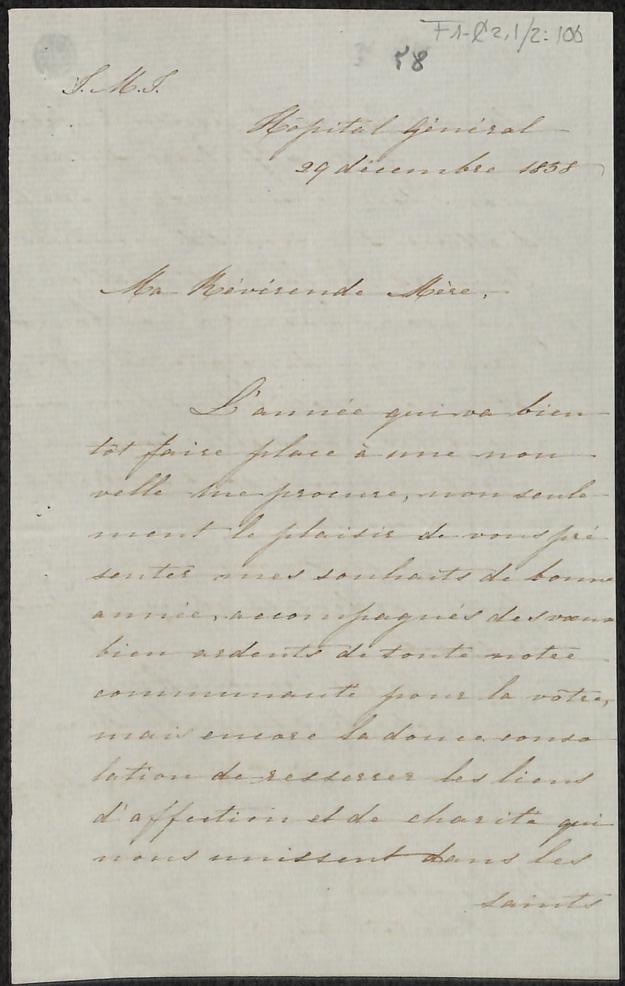 F1-C2,1/2:106
58
J.M.J.
Hôpital Général
29 décembre 1858
Ma Révérende Mère,
L'année qui va bien
tôt faire place à une nou
velle me procure, non seule
ment le plaisir de vous pré
senter mes souhaits de bonne
année, accompagnés des vœux
bien ardents de toute notre
communauté pour la vôtre,
mais encore la douce conso
lation de resserrer les liens
d'affection et de charité qui
nous unissent dans les
saints